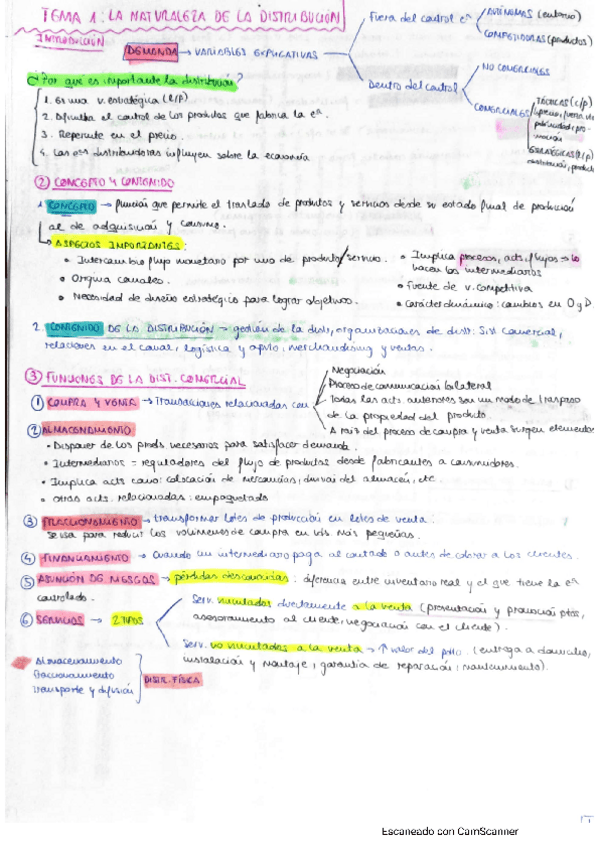 TEMA 1: LA NATURALEZA DE LA DISTRIBUCIÓN
INTRODUCCIÓN
DEMANDA → VARIABLES EXPLICATIVAS
Fuera del control eª
AUTÓNOMAS (entorno)
COMPETIDORAS (productos)
Dentro del control
NO COMERCIALES
COMERCIALES
TÁCTICAS (c/p)
(precio, fuerza vta
publicidad, pro-
moción
ESTRATÉGICAS (l/p)
distribución, producto
¿Por qué es importante la distribución?
1. Es una v. estratégica (l/p)
2. Dificulta el control de los produtos que fabrica la eª.
3. Repercute en el precio.
4. Las eªs distribuidoras influyen sobre la economía
② CONCEPTO Y CONTENIDO
1. CONCEPTO → función que permite el traslado de produtos y servicios desde su estado final de producción
al de adquisición y consumo.
ASPECTOS IMPORTANTES:
• Intercambio flujo monetario por uno de produto/servicio.
• Origina canales.
• Necesidad de diseño estratégico para lograr objetivos.
• Implica procesos, acts, flujos → lo
hacen los intermediarios
• Fuente de v. competitiva
• Carácter dinámico: cambios en O y D
2. CONTENIDO DE LA DISTRIBUCIÓN → gestión de la distr, organizaciones de distr: Sist comercial,
relaciones en el canal, logística y apvto, merchandising y ventas.
③ FUNCIONES DE LA DIST. COMERCIAL
① COMPRA Y VENTA → Transacciones relacionadas con
Negociación
Proceso de comunicación bilateral
Todas las acts anteriores son un modo de traspaso
de la propiedad del produto.
A raíz del proceso de compra y venta surgen elementos
② ALMACENAMIENTO
• Disponer de los prods necesarios para satisfacer demanda.
• Intermediarios = reguladores del flujo de productos desde fabricantes a consumidores.
• Implica acts como: colocación de mercancías, div. del almacén, etc.
• otras acts. relacionadas: empaquetado
③ FRACCIONAMIENTO → transformar lotes de producción en lotes de venta.
Se usa para reducir los volúmenes de compra en uds. más pequeñas.
④ FINANCIAMIENTO → Cuando un intermediario paga al contado o antes de cobrar a los clientes.
⑤ ASUNCIÓN DE RIESGOS → pérdidas desconocidas: diferencia entre inventario real y el que tiene la eª
controlado.
⑥ SERVICIOS → 2 TIPOS
Serv. vinculados directamente a la venta (presentación y promoción ptos,
asesoramiento al cliente, negociación con el cliente).
Serv. no vinculados a la venta → ↑ valor del pdto. (entrega a domicilio,
instalación y montaje, garantía de reparación, mantenimiento).
Almacenamiento
Fraccionamiento
Transporte y difusión
DISTR. FÍSICA
Escaneado con CamScanner